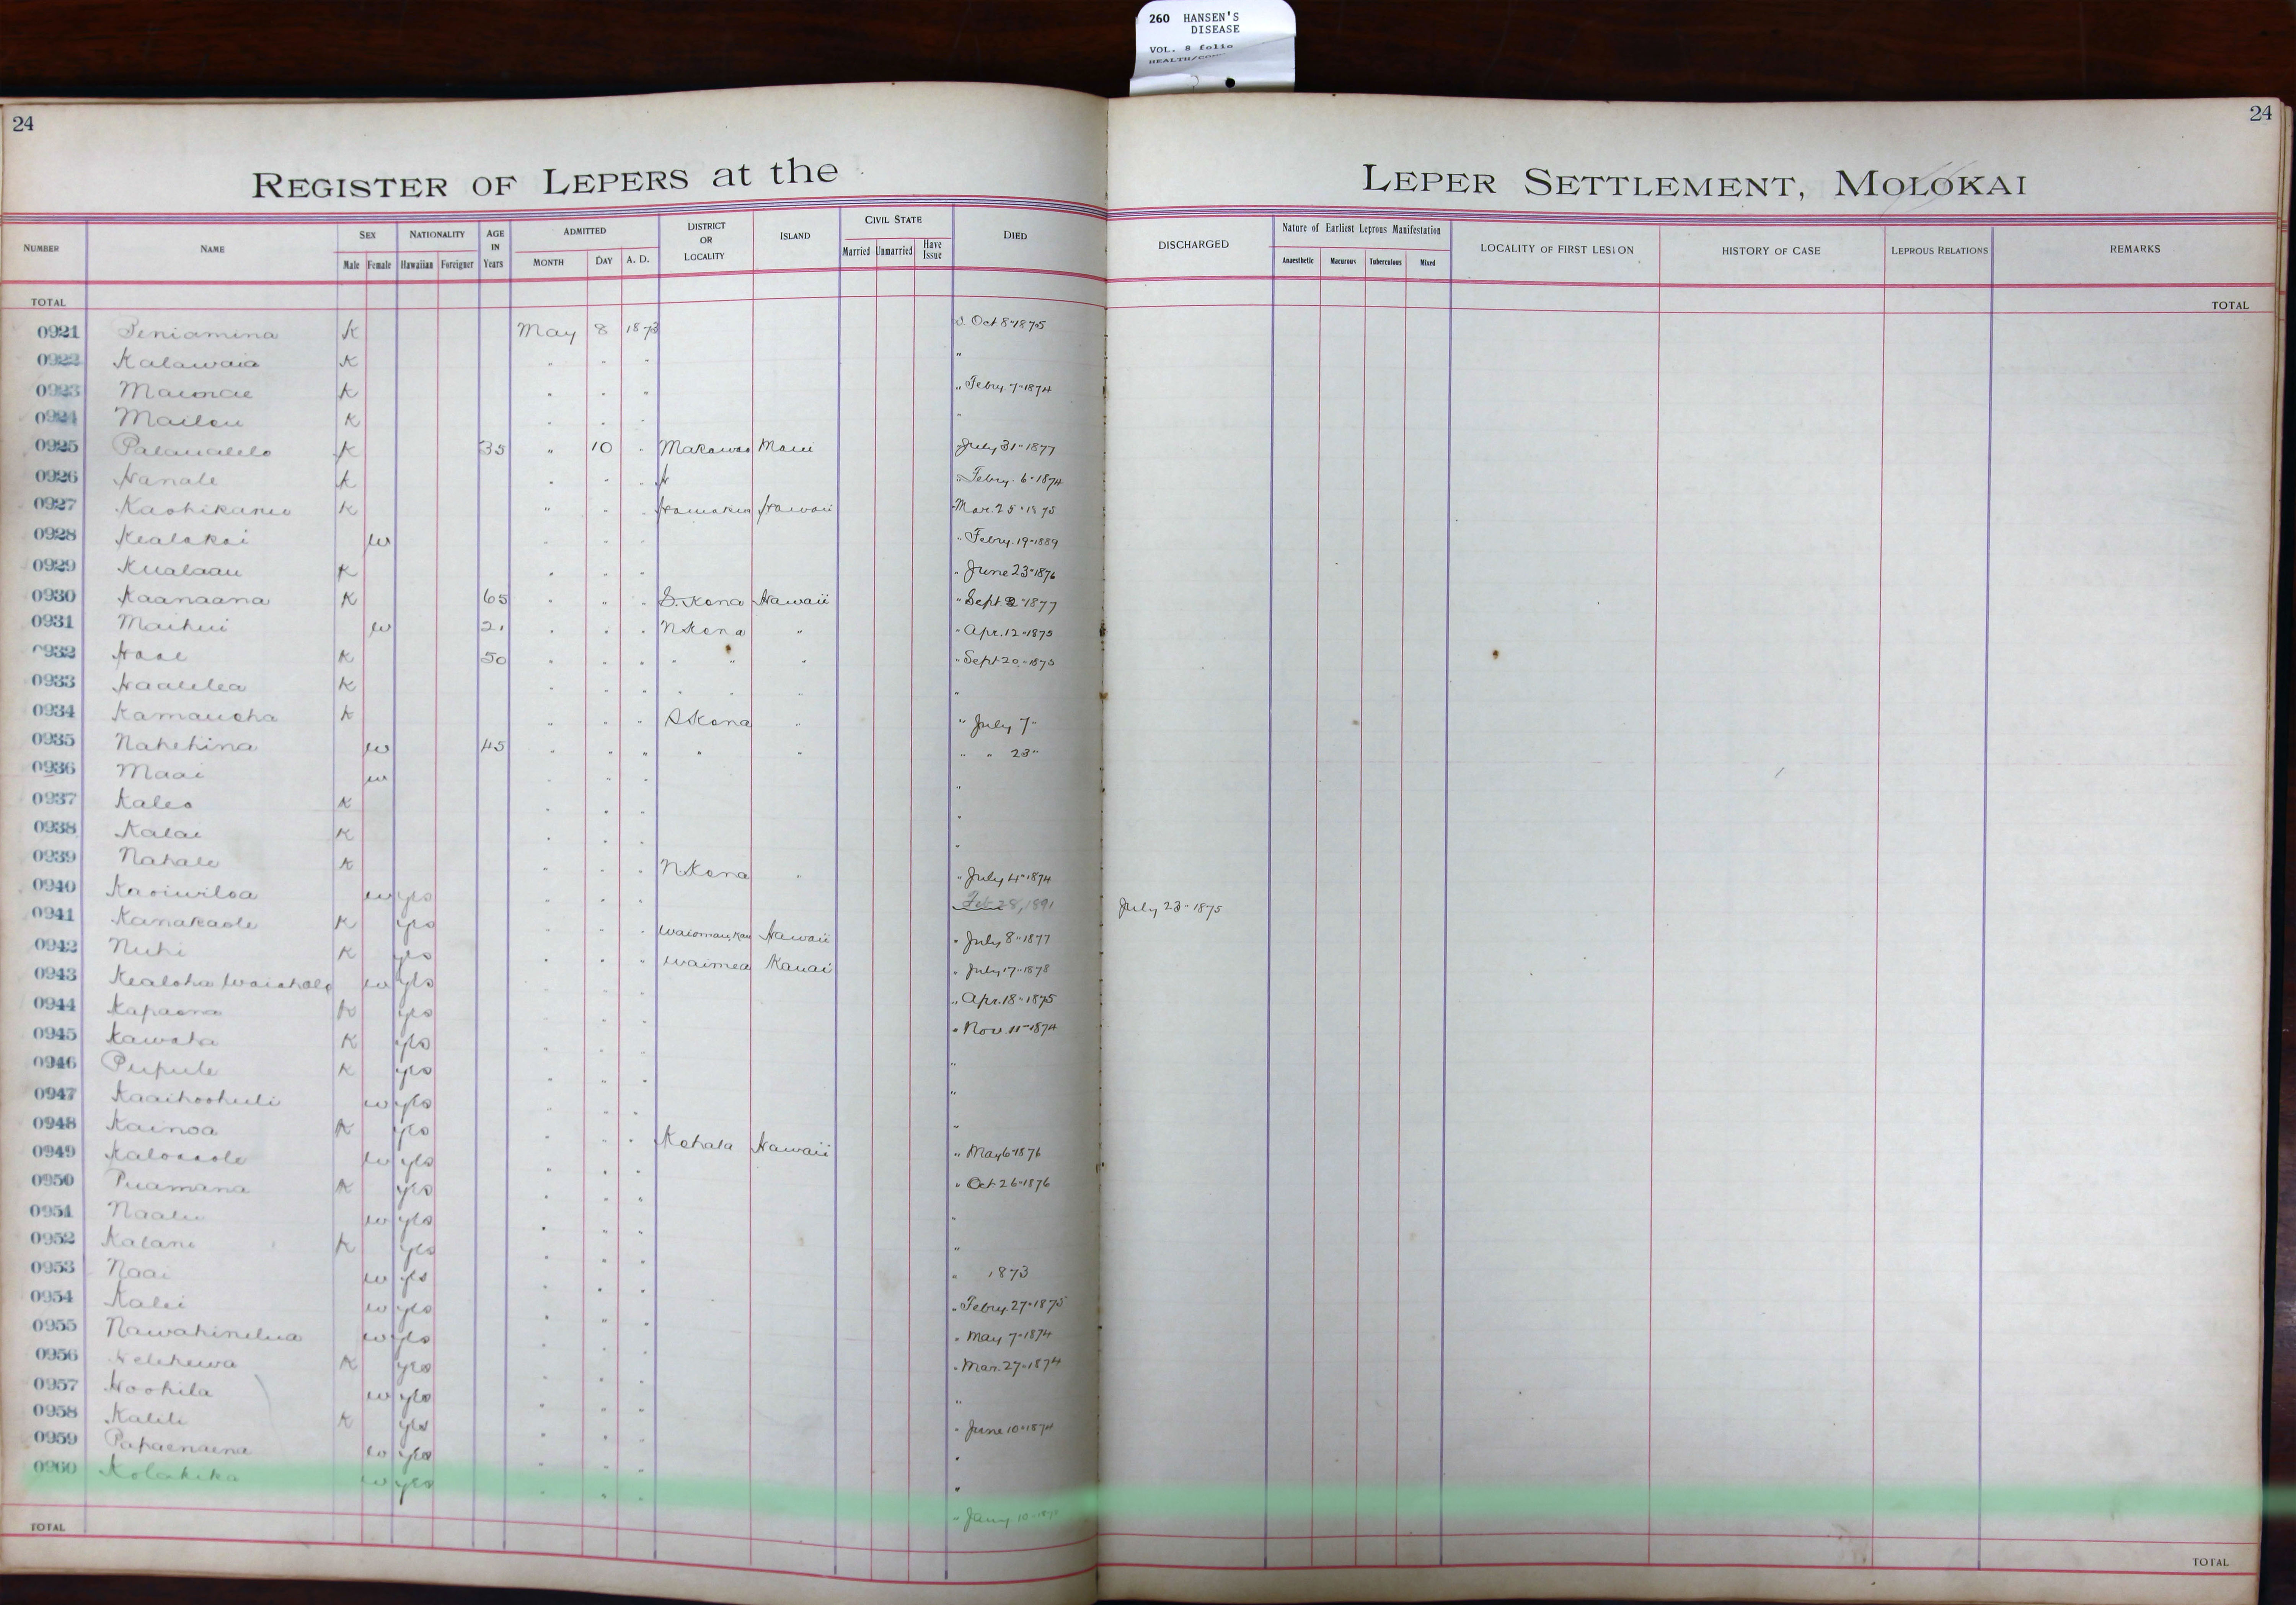 260 HANSEN'S
DISEASE
VOL. 8 folio
24
24
REGISTER OF LEPERS at the LEPER SETTLEMENT, MOLOKAI
NUMBER NAME SEX Male Female NATIONALITY Hawaiian Foreigner AGE IN Years ADMITTED MONTH DAY A. D. DISTRICT OR LOCALITY ISLAND CIVIL STATE Married Unmarried Have Issue DIED DISCHARGED Nature of Earliest Leprous Manifestation Anaesthetic Macurous Tuberculous Mixed LOCALITY OF FIRST LESION HISTORY OF CASE LEPROUS RELATIONS REMARKS
TOTAL TOTAL
0921 Peniamina K May 8 1873 Oct 8" 1875
0922 Kalawaia K " " " "
0923 Maunae K " " " " Febry. 7" 1874
0924 Mailou K " " " "
0925 Palaualelo K 35 " 10 " Makawao Maui " July 31" 1877
0926 Hanale K " " " " Febry. 6" 1874
0927 Kaohikanu K " " " Hamakua Hawaii " Mar. 25" 1875
0928 Kealakai w " " " " Febry. 19" 1889
0929 Kualaau K " " " " June 23" 1876
0930 Kaanaana K 65 " " " S. Kona Hawaii " Sept 2" 1877
0931 Maihui w 21 " " " N Kona " " Apr. 12" 1875
0932 Hoae K 50 " " " " " " " Sept 20" 1875
0933 Haalelea K " " " " " " "
0934 Kamauoha K " " " S Kona " " July 7"
0935 Nahehina w 45 " " " " " " " 23"
0936 Maai w " " " "
0937 Kaleo K " " " "
0938 Kalai K " " " "
0939 Nahale K " " " N Kona " " July 4" 1874
0940 Kaoiwiloa w yes " " " Feb 28, 1891 July 23" 1875
0941 Kanakaole K yes " " " Waiomau, Kau Hawaii " July 8" 1877
0942 Nuhi K yes " " " Waimea Kauai " July 17" 1878
0943 Kealoha Waiohole w yes " " " " Apr. 18" 1875
0944 Kapaona K yes " " " " Nov. 11" 1874
0945 Kawaha K yes " " " "
0946 Pupule K yes " " " "
0947 Kaaihoohuli w yes " " " "
0948 Kainoa K yes " " " Kohala Hawaii " May 6" 1876
0949 w yes " " " " Oct 26" 1876
0950 Puamana K yes " " " "
0951 Naalu w yes " " " "
0952 Kalani K yes " " " " 1873
0953 Naai w yes " " " " Febry. 27" 1875
0954 Kalei w yes " " " " May 7" 1874
0955 Nawahinelua w yes " " " " Mar. 27" 1874
0956 Kelekewa K yes " " " "
0957 Hoohila w yes " " " " June 10" 1874
0958 Kalili K yes " " " "
0959 Papaenaena w yes " " " "
0960 Kolakika w yes " " " " Jany 10"
TOTAL TOTAL